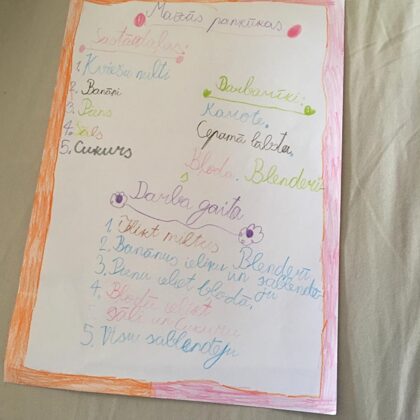 Mazās pankūkas
Sastāvdaļas:
1. Kviešu milti
2. Banāni
3. Piens
4. Sāls
5. Cukurs
Darbarīki:
Karote.
Cepamā lāpsta,
Bļoda. Blenderis
Darba gaita
1. Iliet miltus
2. Banānus ielieku Blenderī
un sablendēju
3. Pienu ieliet blodā,
4. Blodā ieliet
sāli un cukuru
5. Visu sablendēju